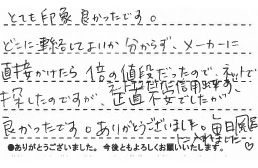 とても印象良かったです。
どこに連絡してよいか分からず、メーカーに
直接かけたら倍の値段だったので、ネットで
探したのですが、ネットはまだ信用出来ず、正直不安でしたが
良かったです。ありがとうございました。毎日風呂に入れました♡
●ありがとうございました。今後ともよろしくお願いします。